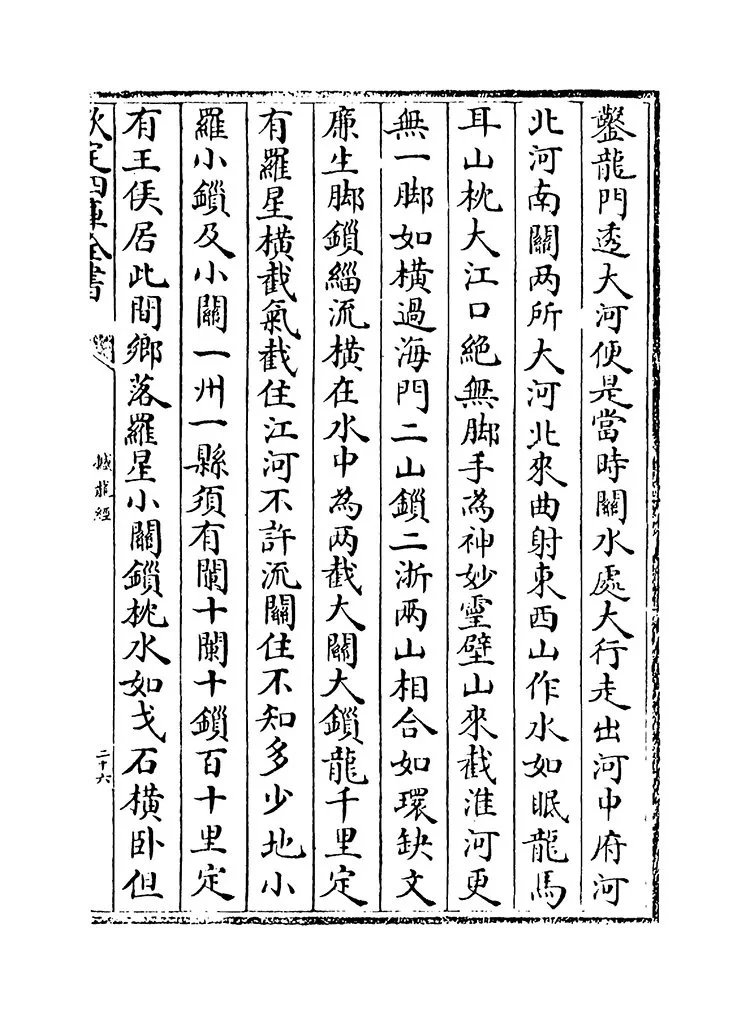 鑿龍門透大河便是當時關水處大行走出河中府河
北河南關两所大河北來曲射東西山作水如眠龍馬
耳山枕大江口絶無脚手為神妙靈壁山來截淮河更
無一脚如橫過海門二山鎖二浙兩山相合如環缺文
廉生脚鎖緇流橫在水中為两截大關大鎖龍千里定
有羅星橫截氣截住江河不許流關住不知多少地小
羅小鎖及小關一州一縣須有闌十闌十鎖百十里定
有王侯居此間鄉落羅星小關鎖枕水如戈石橫卧但
欽定四庫全書
撼龍經
二十六